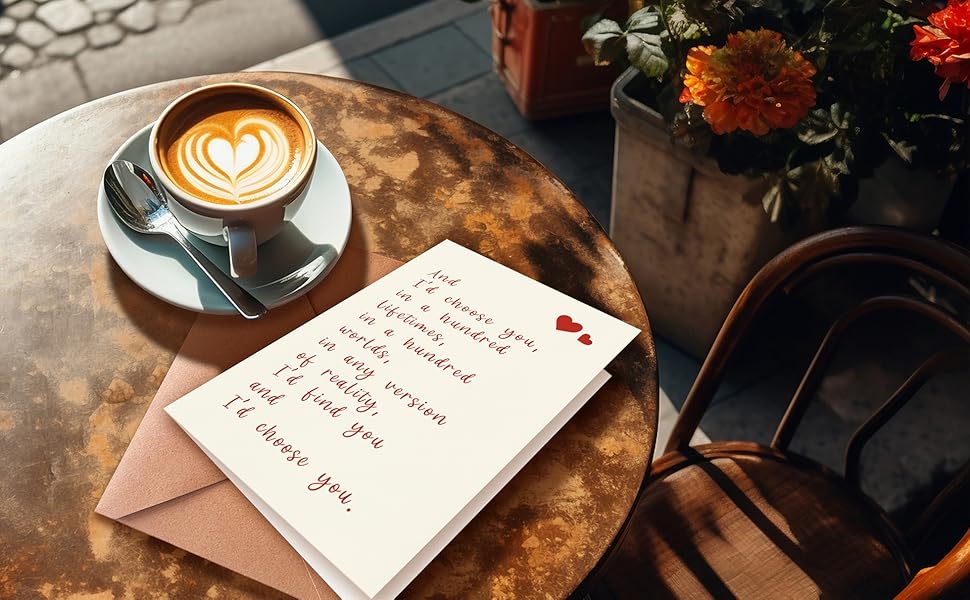 And
I'd choose you,
in a hundred
lifetimes,
in a hundred
worlds,
in any version
of reality,
I'd find you
and
I'd choose you.